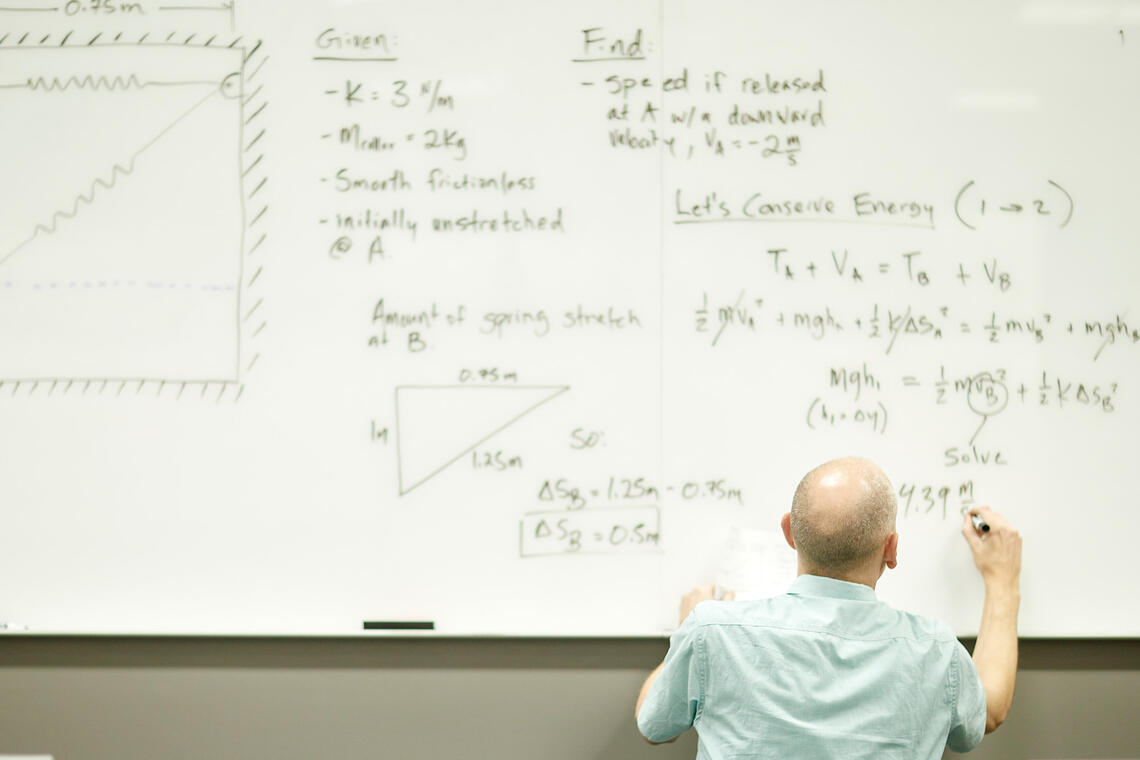 0.75m
Given:
- K = 3 N/m
- Mroller = 2kg
- Smooth frictionless
- initially unstretched
@ A.
Amount of spring stretch
at B.
0.75m
1m
1.25m
So:
ΔS_B = 1.25m - 0.75m
ΔS_B = 0.5m
Find:
- Speed if released
at A w/a downward
velocity, V_A = -2 m/s
Let's Conserve Energy (1 → 2)
T_A + V_A = T_B + V_B
½ m v_A² + mgh₁ + ½ K ΔS_A² = ½ m v_B² + mgh
mgh₁ = ½ m v_B² + ½ K ΔS_B²
(h₁ = Δy)
Solve
4.39 m